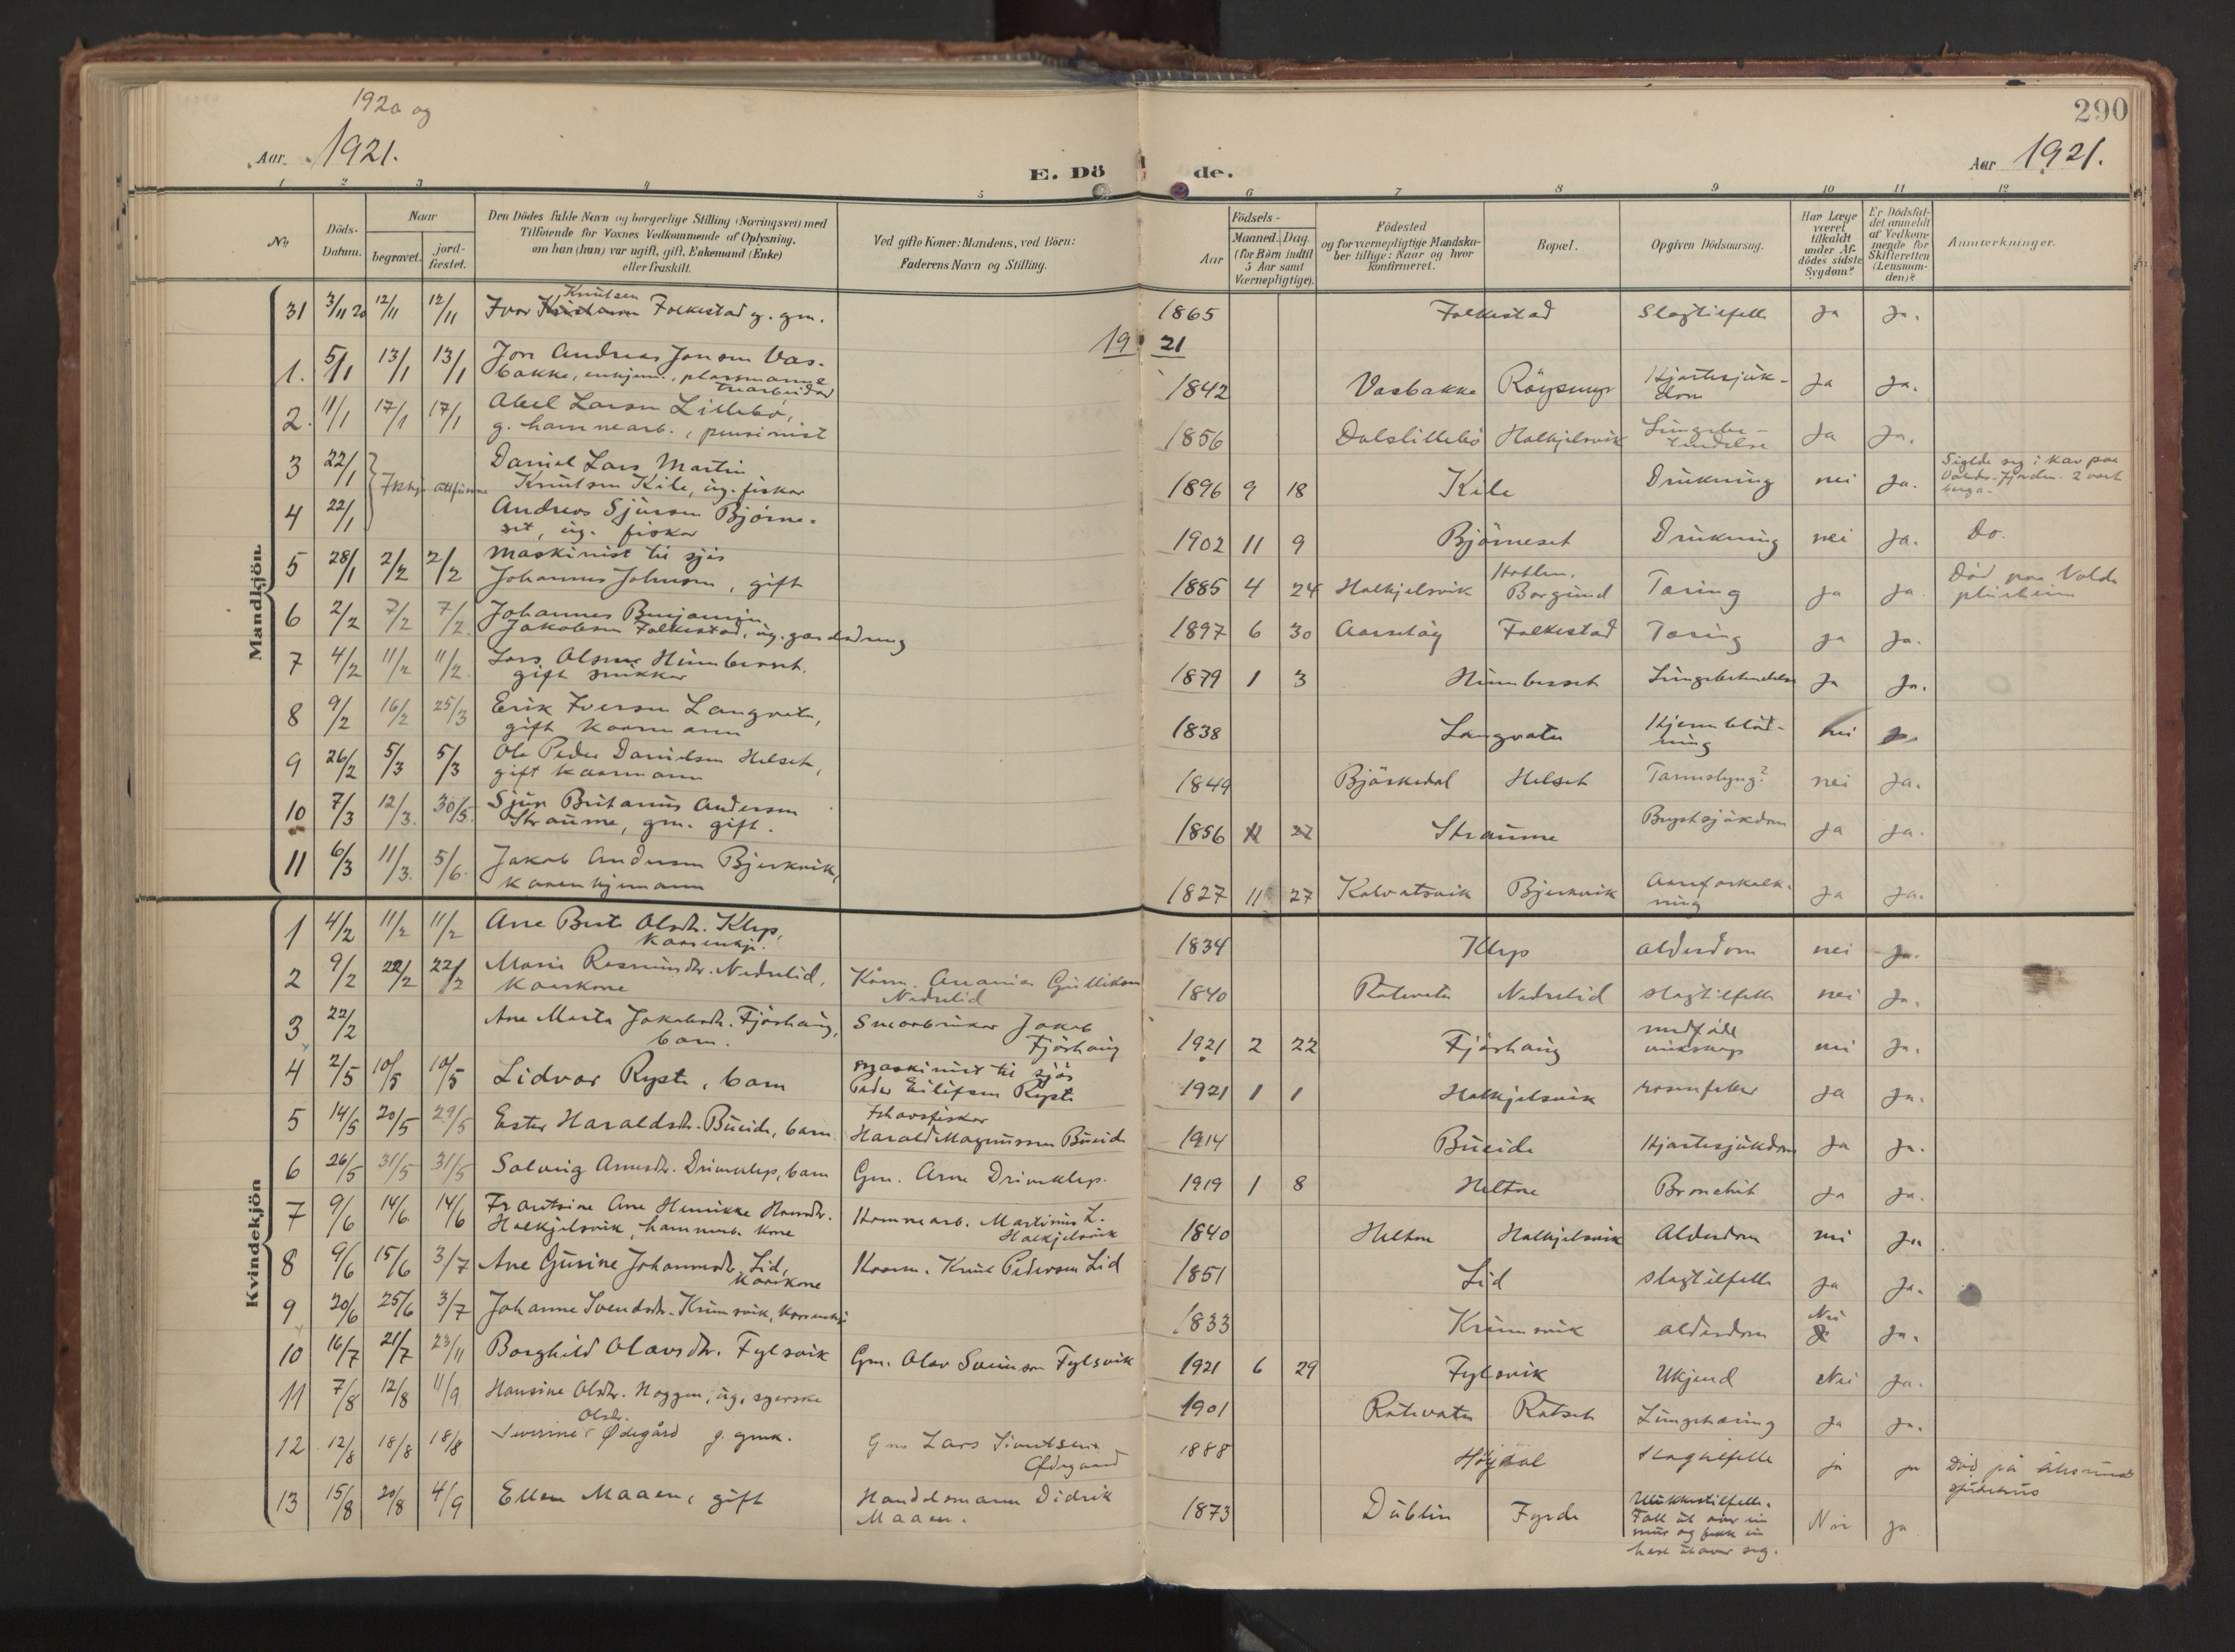 1920 og
Aar. 1921.
E. Döde.
290
Aar 1921.
1 2 3 4 5 6 7 8 9 10 11 12
No
Döds-Datum.
Naar
begravet.
jord-fæstet.
Den Dödes fulde Navn og borgerlige Stilling (Næringsvei) med
Tilföiende for Voxnes Vedkommende af Oplysning,
om han (hun) var ugift, gift, Enkemand (Enke)
eller fraskilt.
Ved gifte Koner: Mandens, ved Börn:
Faderens Navn og Stilling.
Födsels-
Aar
Maaned. Dag.
(for Börn indtil
5 Aar samt
Værnepligtige).
Födested
og for værnepligtige Mandska-
ber tillige: Naar og hvor
konfirmeret.
Bopæl.
Opgiven Dödsaarsag.
Har Læge
været
tilkaldt
under Af-
dödes sidste
Sygdom?
Er Dödsfal-
det anmeldt
af Vedkom-
mende for
Skifteretten
(Lensman-
den)?
Anmærkninger.
Mandkjön.
31 3/11 20 12/11 12/11 Ivar Knutsen Folkestad g. gm. 1865 Folkestad Slagtilfelle Ja Ja.
19 21
1. 5/1 13/1 13/1 Jon Andreas Jonsen Vas-
bakke, enkjem., plassmann
trearbeidar 1842 Vasbakke Röysmyr Hjartesjuk-
dom Ja Ja.
2. 11/1 17/1 17/1 Abel Larsen Lillebö,
g. hamnearb., pensionist 1856 Dalslillebö Halkjelsvik Ja Ja.
3 22/1 Daniel Lars Martin
Knutsen Kile, ug. fiskar 1896 9 18 Kile Drukning nei Ja. Siglde seg i kav paa
Volds-Fjorden. 2 vart
berga.
4 22/1 Andreas Sjursen Bjørne-
set, ug. fiskar 1902 11 9 Björneset Drukning nei Ja. Do.
5 28/1 2/2 2/2 maskinist til sjis
Johannes Johnsen, gift 1885 4 24 Halkjelsvik Borgund Tæring Ja Ja Död paa Volda
pleieheim
6 2/2 7/2 7/2 Johannes Benjamin
Jakobsen Folkestad, ug. gardsdreng 1897 6 30 Aarsetöy Folkestad Tæring Ja Ja.
7 4/2 11/2 11/2 Lars Olsen Humberset.
gift snikkar 1879 1 3 Humberset Lungebetendelse Ja Ja.
8 9/2 16/2 25/3 Erik Iversen Langvatn,
gift kaarmann 1838 Langvatn Hjerneblöd-
ning nei
9 26/2 5/3 5/3 Ole Peder Danielsen Helset,
gift kaarmann 1849 Björkedal Helset Tarmslyng? nei Ja.
10 7/3 12/3. 30/5. Sjur Britanus Andersen
Straume, gm. gift. 1856 Straume Brystsjukdom Ja Ja.
11 6/3 11/3. 5/6. Jakob Andersen Bjerkvik,
kaarenkjemann 1827 11 27 Kalvatsvik Bjerkvik Aareforkalk-
ning Ja Ja.
Kvindekjön
1 4/2 11/2 11/2 Ane Berte Olsdtr. Klep,
Kaarenkje. 1834 Klep alderdom nei Ja.
2 9/2 22/2 22/2 Marie Rasmusdtr. Nedrelid,
Kaarkone Kårm. Ananias Gulliksen
Nedrelid 1840 Rotevatn Nedrelid slagtilfelle nei Ja.
3 22/2 Ane Marta Jakobsdtr. Fjörhaug,
barn. Smaabrukar Jakob
Fjörhaug 1921 2 22 Fjörhaug medfödt nei Ja.
4 2/5 10/5 10/5 Lidvar Ryste, barn maskinist til sjös
Peder Eilifsen Ryste 1921 1 1 Halkjelsvik rosenfeber Ja Ja.
5 14/5 20/5 29/5 Ester Haraldsdtr. Bueide, barn. Ishavsfiskar
Harald Magnussen Bueide 1914 Bueide Hjartesjukdom Ja Ja.
6 26/5 31/5 31/5 Solveig Arnesdtr. Drimeklep, barn Gm. Arne Drimeklep. 1919 1 8 Heltne Bronchit Ja Ja.
7 9/6 14/6. 14/6 Frantsine Ane Henrikke Hansdtr.
Halkjelsvik, hamnearb. kone Hamnearb. Martinus L.
Halkjelsvik 1840 Heltne Halkjelsvik Alderdom nei Ja
8 9/6 15/6 3/7 Ane Gurine Johannesdtr. Lid,
Kaarkone Kaarm. Knut Pedersen Lid 1851 Lid slagtilfelle Ja Ja.
9 20/6 25/6 3/7 Johanne Svendsdtr. Krumsvik, Kaarenkje 1833 Krumsvik alderdom Nei Ja.
10 16/7 21/7 23/11 Borghild Olavsdtr. Fylsvik Gm. Olav Sveinson Fylsvik 1921 6 29 Fylsvik Ukjend Nei Ja.
11 7/8 12/8 11/9 Hansine Olsdtr. Hoggen, ug, syerske 1901 Rotevatn Rotset Lungetæring Ja Ja.
12 12/8 18/8 18/8 Severine Olsdtr. Ødegård g. gmk. Gm Lars Sivertsen
Ødegaard 1888 Höydal Slagtilfelle ja ja Död på Ålesund
sjukehus
13 15/8 20/8 4/9 Ellen Maaen, gift Handelsmann Didrik
Maaen. 1873 Dublin Fyrde Ulukkestilfelle.
Fall ut over ein
mur og fekk ein
hest utover seg. Nei ja